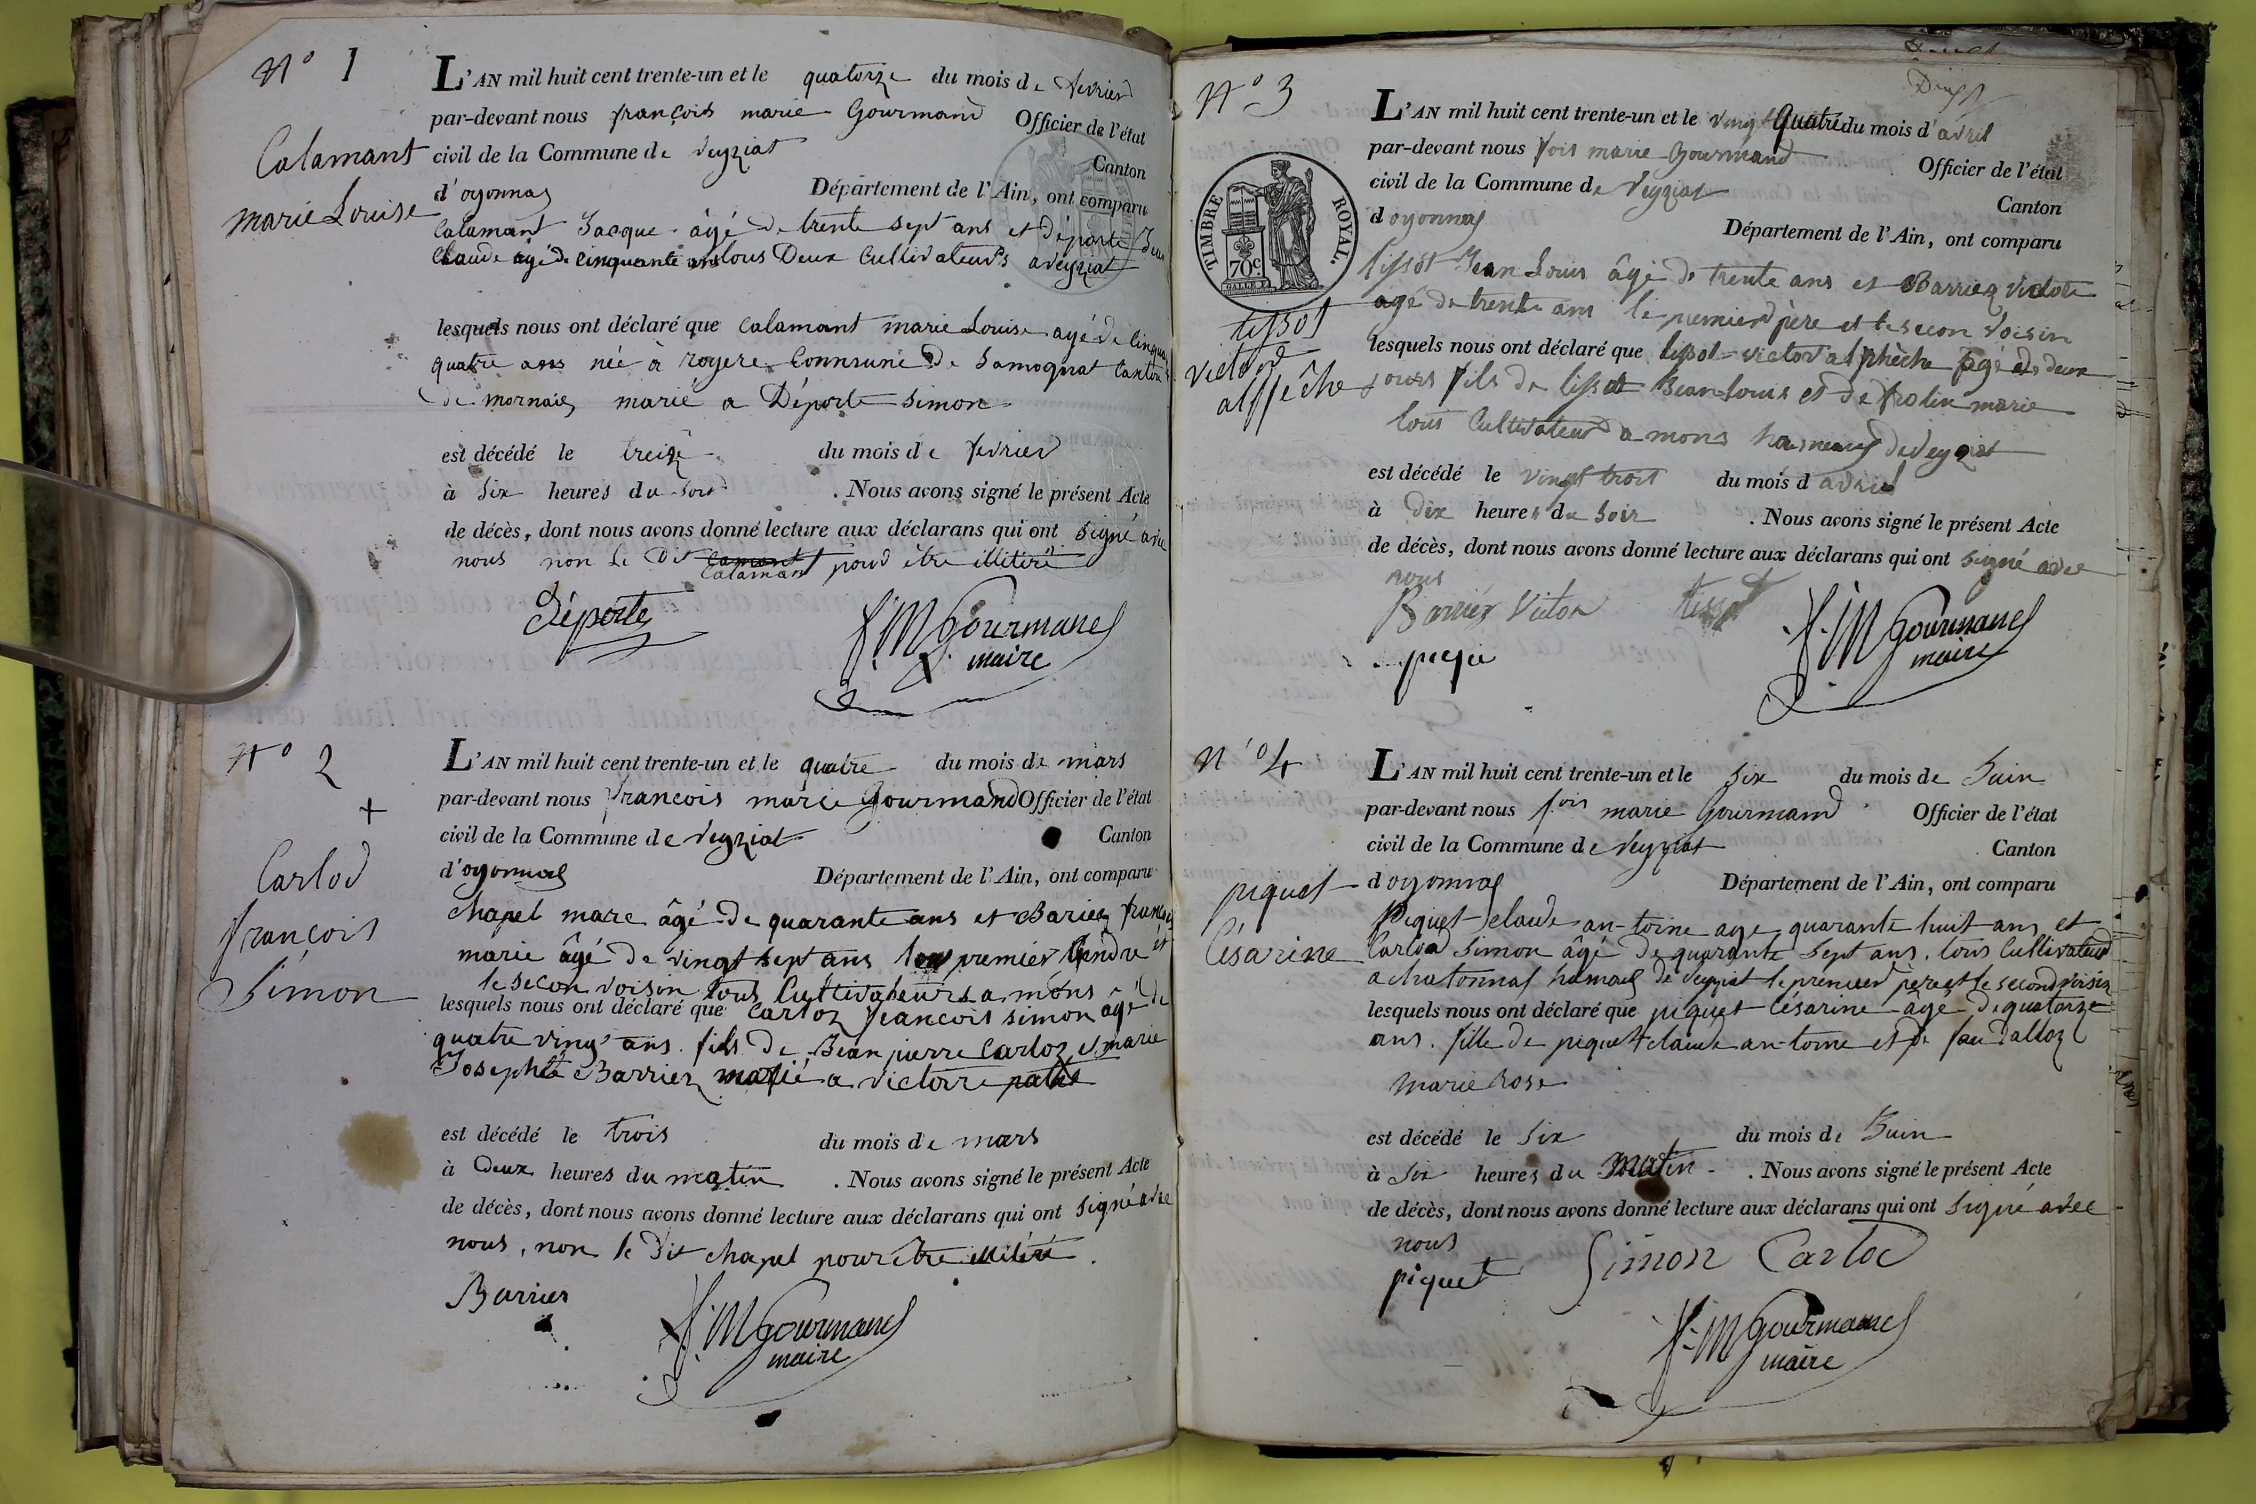 N° 1
Calamant
marie Louise
L'AN mil huit cent trente-un et le quatorze du mois de fevrier
par-devant nous françois marie Gourmand Officier de l'état
civil de la Commune de veyziat Canton
d'oyonnas Département de l'Ain, ont comparu
Calamant Jacque âgé de trente sept ans et déporte Jean
Claude âgé de cinquante ans tous Deux Cultivateurs a veyziat
lesquels nous ont déclaré que Calamant marie Louise agé de Cinquante
quatre ans née à rogere Commune de Samognat Canton
de mornaie marié a Déporte Simon
est décédé le treize du mois de fevrier
à Six heures du Soir . Nous avons signé le présent Acte
de décès, dont nous avons donné lecture aux déclarans qui ont signé avec
nous non le Dit Calamant pour être illitéré
Déporte
f. M Gourmand
maire
N° 2
+
Carlod
françois
Simon
L'AN mil huit cent trente-un et le quatre du mois de mars
par-devant nous francois marie Gourmand Officier de l'état
civil de la Commune de veyziat Canton
d'oyonnas Département de l'Ain, ont comparu
Chapel marc âgé de quarante ans et Bariez francois
marie âgé de vingt sept ans le premier Gendre et
le secon voisin tous Cultivateurs a mons
lesquels nous ont déclaré que Carloz francois simon âgé de
quatre vingt ans fils de Jean pierre Carloz et marie
Josephte Barriez marié a victoire
est décédé le trois du mois de mars
à Deux heures du matin . Nous avons signé le présent Acte
de décès, dont nous avons donné lecture aux déclarans qui ont signé avec
nous, non le Dit chapel pour être illitéré .
Barrier
f. M Gourmand
maire
N° 3
TIMBRE ROYAL.
70c
GALLE F.
tissot
victor
alphêche
L'AN mil huit cent trente-un et le vingt Quatre du mois d'avril
par-devant nous fois marie Gourmand Officier de l'état
civil de la Commune de veyziat Canton
d oyonnas Département de l'Ain, ont comparu
tissot Jean Louis âgé de trente ans et Barriez victor
agé de trente ans le premier père et le secon voisin
lesquels nous ont déclaré que tissot victor alphèche âgé de deux
jours fils de tissot Jean Louis et de frolin marie
tous Cultivateur a mons hameau de veyziat
est décédé le vingt trois du mois d avril
à dix heures du Soir . Nous avons signé le présent Acte
de décès, dont nous avons donné lecture aux déclarans qui ont signé avec
nous
Barriéz Victor tissot
f. M Gourmand
maire
N° 4
piquet
Césarine
L'AN mil huit cent trente-un et le Six du mois de Juin
par-devant nous fois marie Gourmand Officier de l'état
civil de la Commune de veyziat Canton
d oyonnas Département de l'Ain, ont comparu
Piquet claude an-toine age quarante huit ans et
Carlod Simon âgé de quarante Sept ans. tous Cultivateur
a chatonnas hamas de veyziat le premier père et le second voisin
lesquels nous ont déclaré que piquet Césarine âgé de quatorze
ans. fille de piquet claude an-toine et de feu dalloz
Marie Rose
est décédé le Six du mois de Juin
à Six heures du Matin . Nous avons signé le présent Acte
de décès, dont nous avons donné lecture aux déclarans qui ont signé avec
nous
piquet Simon Carlod
f. M Gourmand
maire